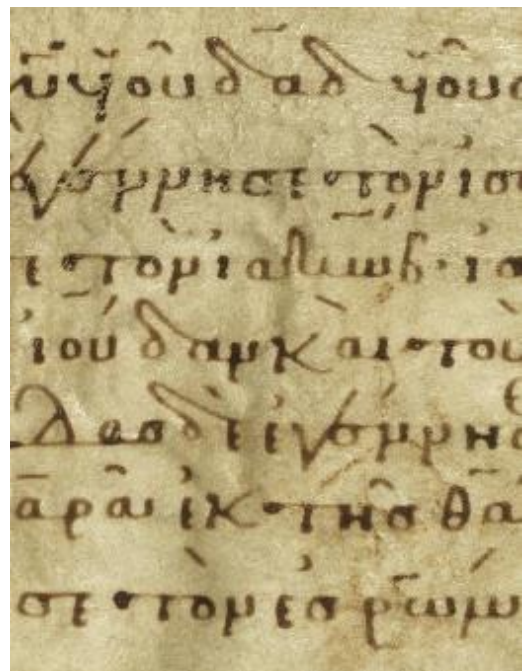 υ υἱοῦ δα̅δ υἱοῦ
ἐγέννησε τὸν ἰσ
ε τὸν ἰακὼβ· ἰα
ἰούδαν καὶ τοὺ
δας δὲ ἐγέννησ
αρὰ ἐκ τῆς θα
σε τὸν ἐσρώμ